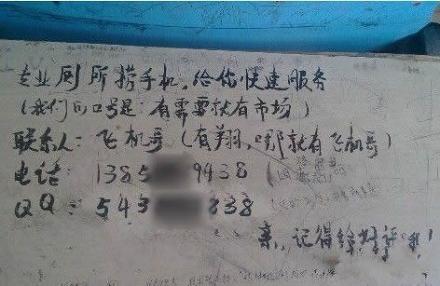 专业厕所捞手机，给你快速服务
（我们的口号是：有需要就有市场）
联系人：飞机哥（有翔，哪就有飞机哥）
电话：1385 9938
QQ：543 838
亲，记得给好评哦！